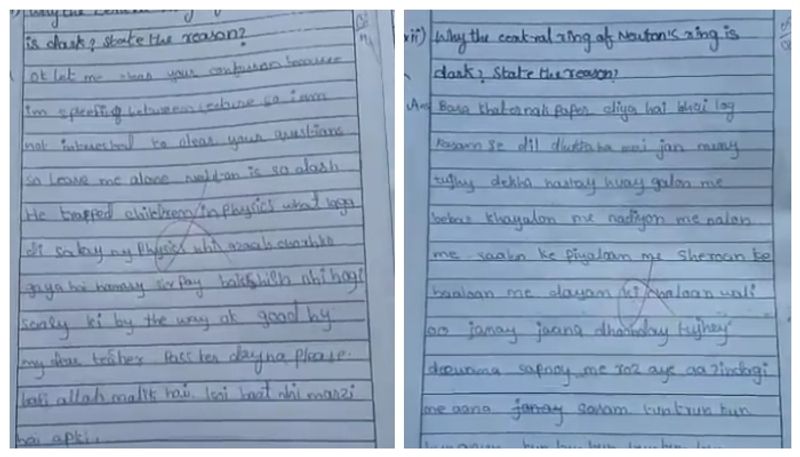 is dark? State the reason?
ok let me clear your confusion because
im speeling between lecture so i am
not interested to clear your questions
so leave me alone is so
He trapped childrem in physics what laga
di salay ny physics nhi azaab
gaya hai hamary sir pay bakhshish nhi hogi
saaly ki by the way ok good by
my dear teacher pass ker dayna please.
baki allah malik hai. koi baat nhi marzi
hai apki.
xii) Why the central ring of Newton's ring is
dark? State the reason?
Ans Bara khatarnak paper diya hai bhai log
Kasam se dil dhukha ha mei jan
tujhy dekha hastay huay galon me
bekar khayalon me nadiyon me nalon
me saalon ke piyalaon me sheman ke
baalaon me dayam ki waloan wali
oo janay jaana dhoonday tujhey
deewana sapnay me roz aye aa zindagi
me aana janay sanam tun trun tun